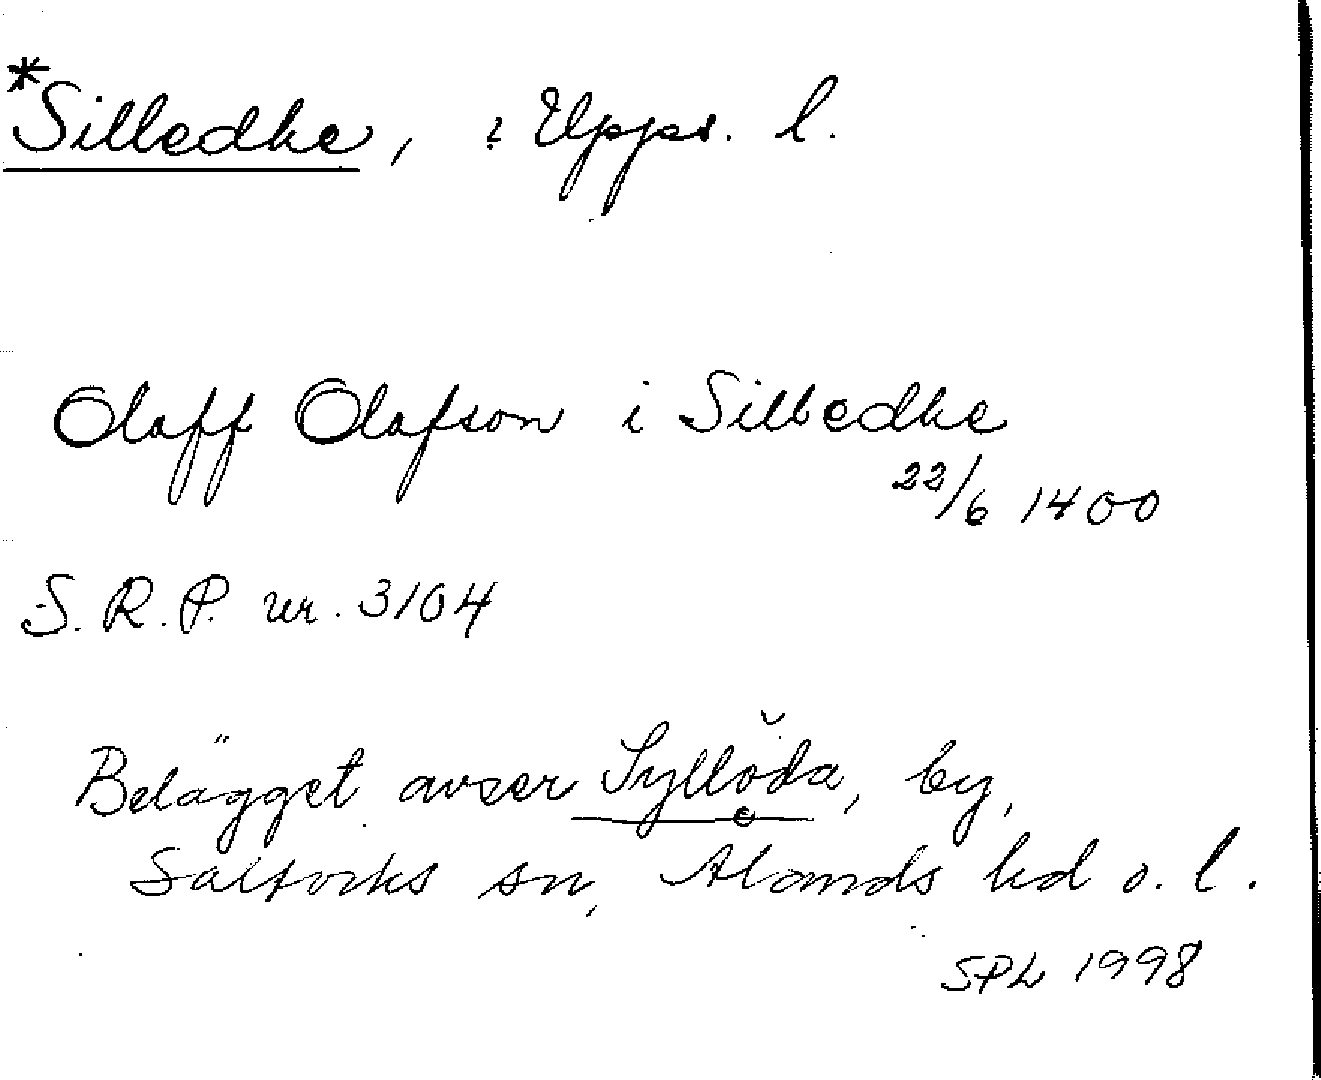 *Silledke, i Upps. l.
Olaff Olafson i Silledke
22/6 1400
S. R. P. nr. 3104
Belägget avser Sylloda, by,
Saltviks sn, Ålands hd o. l.
SPL 1998